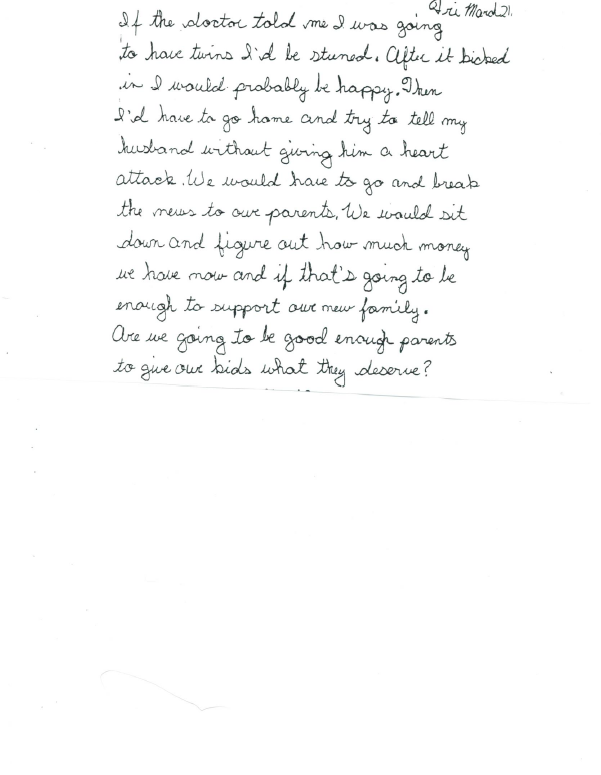 Fri March 21.
If the doctor told me I was going
to have twins I'd be stuned. After it kicked
in I would probably be happy. Then
I'd have to go home and try to tell my
husband without giving him a heart
attack. We would have to go and break
the news to our parents. We would sit
down and figure out how much money
we have now and if that's going to be
enough to support our new family.
Are we going to be good enough parents
to give our kids what they deserve?